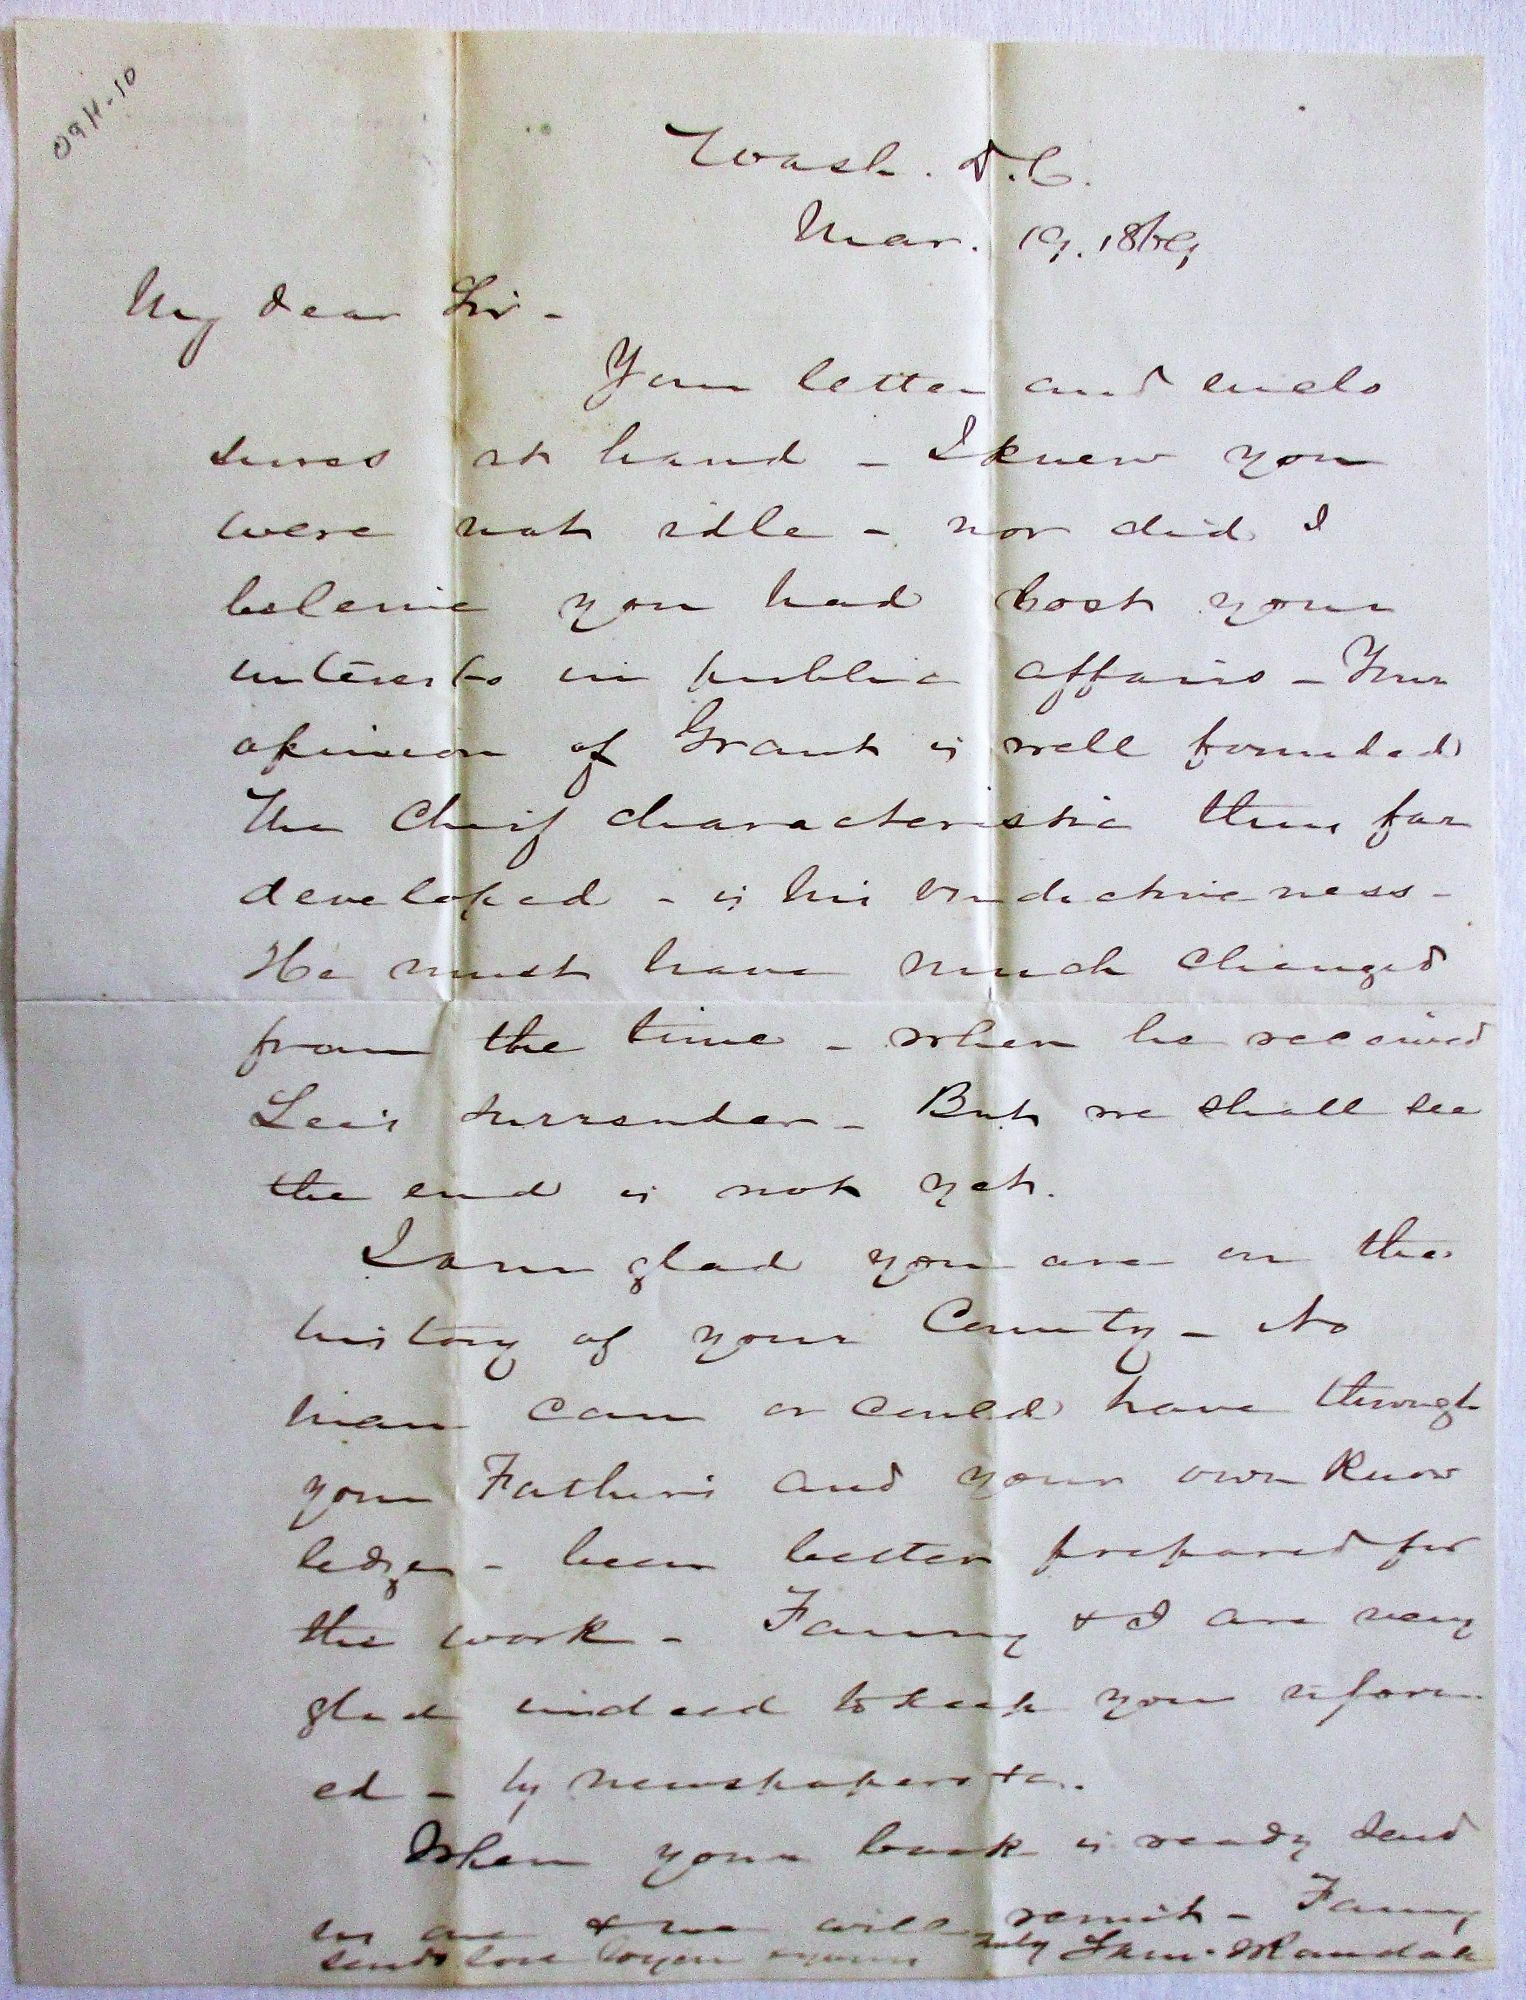 09H-10
Wash. D.C.
Mar. 19. 1869
My dear Sir -
Your letter and enclo
sures at hand - I knew you
were not idle - nor did I
beleive you had lost your
interests in public affairs - Your
opinion of Grant is well founded
The Cheif characteristic thus far
developed - is his vindictiveness -
He must have much changed
from the time - when he received
Lee's surrender - But we shall see
the end is not yet.
I am glad you are on the
history of your County - No
man can or could have through
your Father's and your own Know
ledge - been better prepared for
the work - Fanny & I are very
glad indeed to keep you inform
ed - by newspapers &c.
When your book is ready send
us one & we will remit - Fanny
sends love to you & yours truly Randall